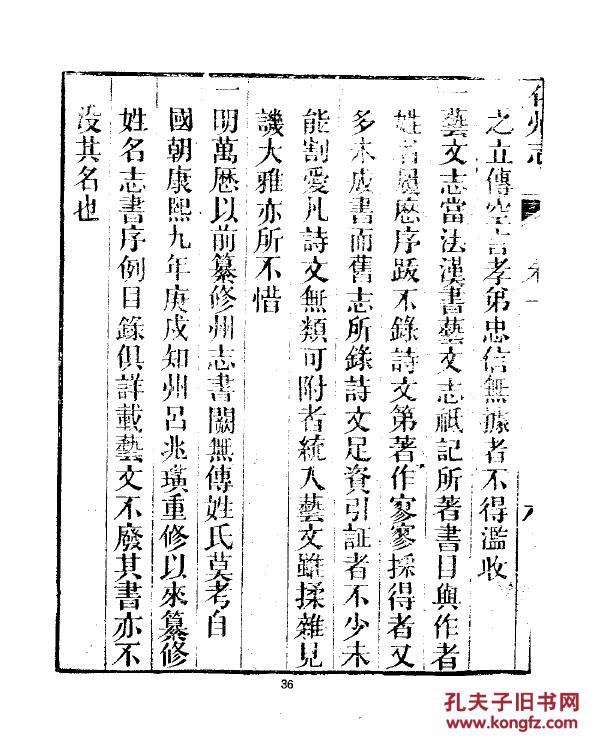 州志
之立傳空言孝弟忠信無據者不得濫收
一藝文志當法漢書藝文志祇記所著書目與作者
姓名履歷序跋不錄詩文第著作寥寥採得者又
多未成書而舊志所錄詩文足資引証者不少未
能割愛凡詩文無類可附者統入藝文雖揉雜見
譏大雅亦所不惜
一明萬歷以前纂修州志書闕無傳姓氏莫考自
國朝康熙九年庚戌知州呂兆璜重修以來纂修
姓名志書序例目錄俱詳載藝文不廢其書亦不
没其名也
36
孔夫子旧书网
www.kongfz.com